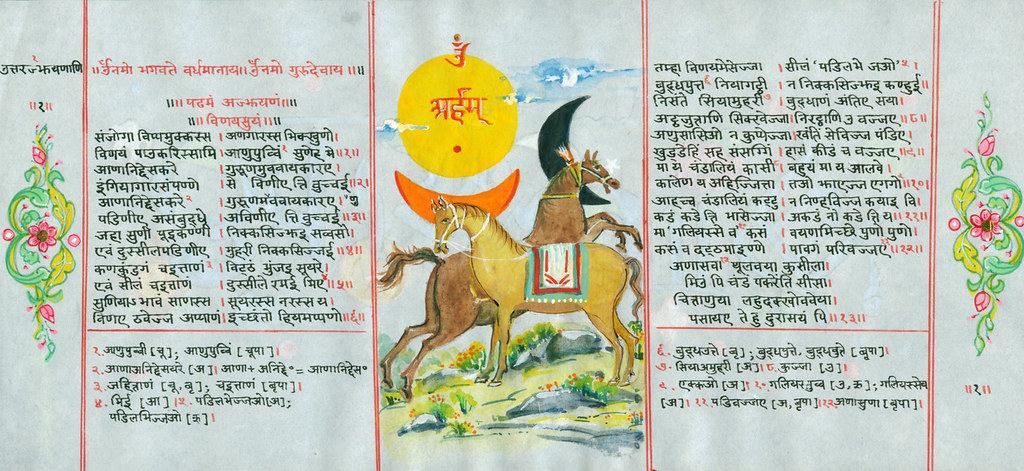 उत्तरज्झयणाणि
॥२॥
॥ॐ नमो भगवते वर्धमानाय॥ ॐ नमो गुरुदेवाय॥॥
॥॥ पढमं अज्झयणं॥॥
॥विणयसुयं॥॥
संजोगा विप्पमुक्कस्स । अणगारस्स भिक्खुणो।
विणयं पाउकरिस्सामि । आणुपुव्विं सुणेह मे॥१॥
आणानिद्देसकरे । गुरूणमुववायकारए।
इंगियागारसंपण्णे । से विणीए त्ति वुच्चई॥२॥
आणानिद्देसकरे । गुरूणमणुववायकारए।
पडिणीए असंबुद्धे । अविणीए त्ति वुच्चई॥३॥
जहा सुणी पूइकण्णी । निक्कसिज्जइ सव्वसो।
एवं दुस्सीलपडिणीए । मुहरी निक्कसिज्जई॥४॥
कणकुंडगं चइत्ताणं । विट्ठं भुंजइ सूयरे।
एवं सीलं चइत्ताणं । दुस्सीले रमई मिए॥५॥
सुणियाऽभावं साणस्स । सूयरस्स नरस्स य।
विणए ठवेज्ज अप्पाणं । इच्छंतो हियमप्पणो॥६॥
१. आणुपुव्वी [चू]; आणुपुव्विं [चूपा]।
२. आणाअनिद्देसयरे [अ]। आणा+ अनिद्दे°= आणानिद्देस°
३. जहित्ताणं [चू, वृ]; चइत्ताणं [वृपा]।
४. मिई [आ]। ५. पडिलभेज्जओ [अ];
पडिलभिज्जओ [ऋ]।
ॐ
अर्हम्
तम्हा विणयमेसेज्जा । सीलं पडिलभे जओ।
बुद्धपुत्त नियागट्ठी । न निक्कसिज्जइ कण्हुई॥
निसंते सियामुहरी । बुद्धाणं अंतिए सया।
अट्ठजुत्ताणि सिक्खेज्जा । निरट्ठाणि उ वज्जए॥८॥
अणुसासिओ न कुप्पेज्जा । खंतिं सेविज्ज पंडिए।
खुड्डेहिं सह संसग्गिं । हासं कीडं च वज्जए॥९॥
मा य चंडालियं कासी । बहुयं मा य आलवे।
कालेण य अहिज्जित्ता । तओ झाएज्ज एगगो॥१०॥
आहच्च चंडालियं कट्टु । न निण्हविज्ज कयाइ वि।
कडं कडे त्ति भासेज्जा । अकडं नो कडे त्ति य॥११॥
मा गलियस्से व कसं । वयणमिच्छे पुणो पुणो।
कसं व दट्ठुमाइण्णे । पावगं परिवज्जए॥१२॥
अणासवा थूलवया कुसीला।
मिउं पि चंडं पकरेंति सीसा।
चित्ताणुया लहुदक्खोववेया।
पसायए ते हु दुरासयं पि॥१३॥
६. बुद्धउत्ते [वृ]; बुद्धपुत्ते, बुद्धवुत्ते [वृपा]।
७. सियाअमुहरी [अ]। ८. कुज्जा [उ]।
९. एक्कओ [अ]। १०. गलियस्सुव्व [उ, ऋ]; गलियस्सेव
[अ]। ११. पडिवज्जए [अ, वृपा]। १२. अणासुणा [वृपा]।
॥२॥